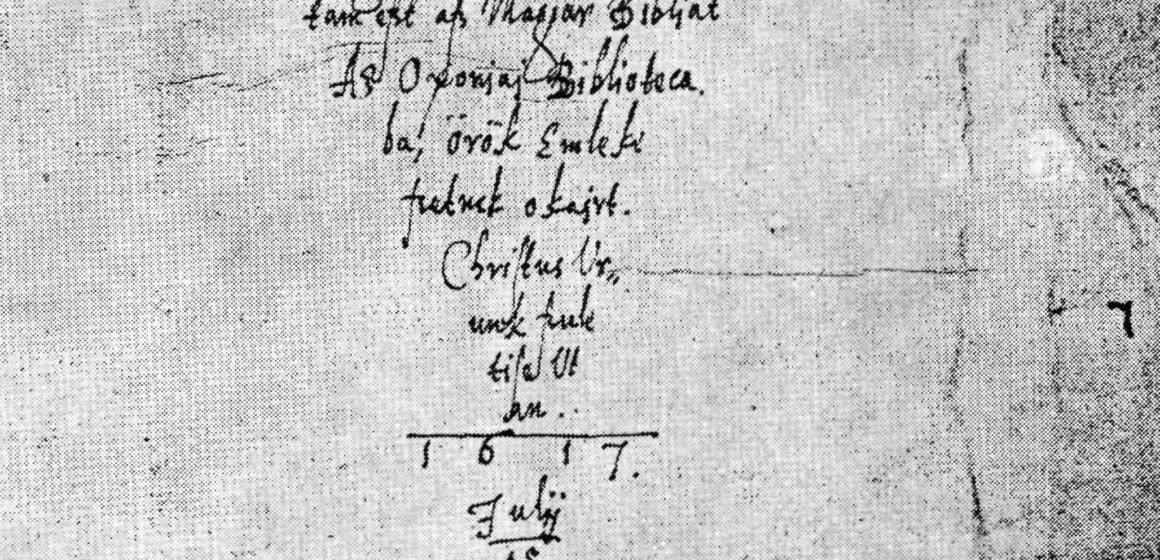 tam ezt aß Magjar Bibljat
Aß Oxonjaj Biblioteca.
ba, örök Emleke
okajrt.
Christus Ur„
unk ſule
tiſe Ut
an.
1617.
Julij